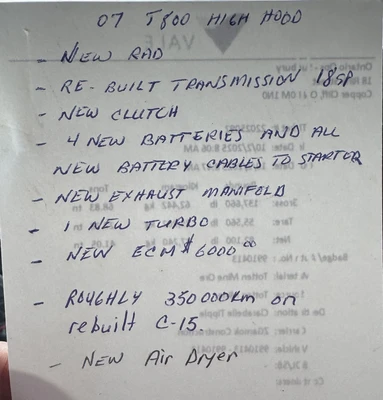 07 T800 HIGH HOOD
- NEW RAD
- RE-BUILT TRANSMISSION 18SP
- NEW CLUTCH
- 4 NEW BATTERIES AND ALL
NEW BATTERY CABLES TO STARTER
- NEW EXHAUST MANIFOLD
- 1 NEW TURBO
- NEW ECM $6000 00
- ROUGHLY 350 000km on
rebuilt C-15.
- NEW Air Dryer